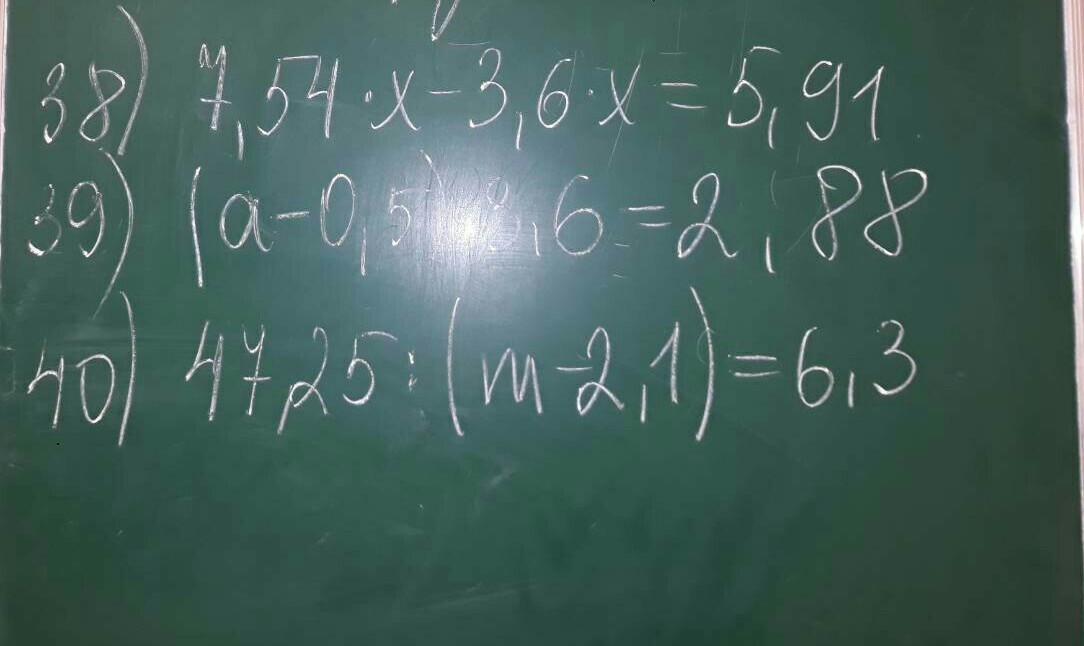 38) 7,54·x-3,6·x=5,91
39) (a-0,5) ,6=2,88
40) 47,25:(m-2,1)=6,3